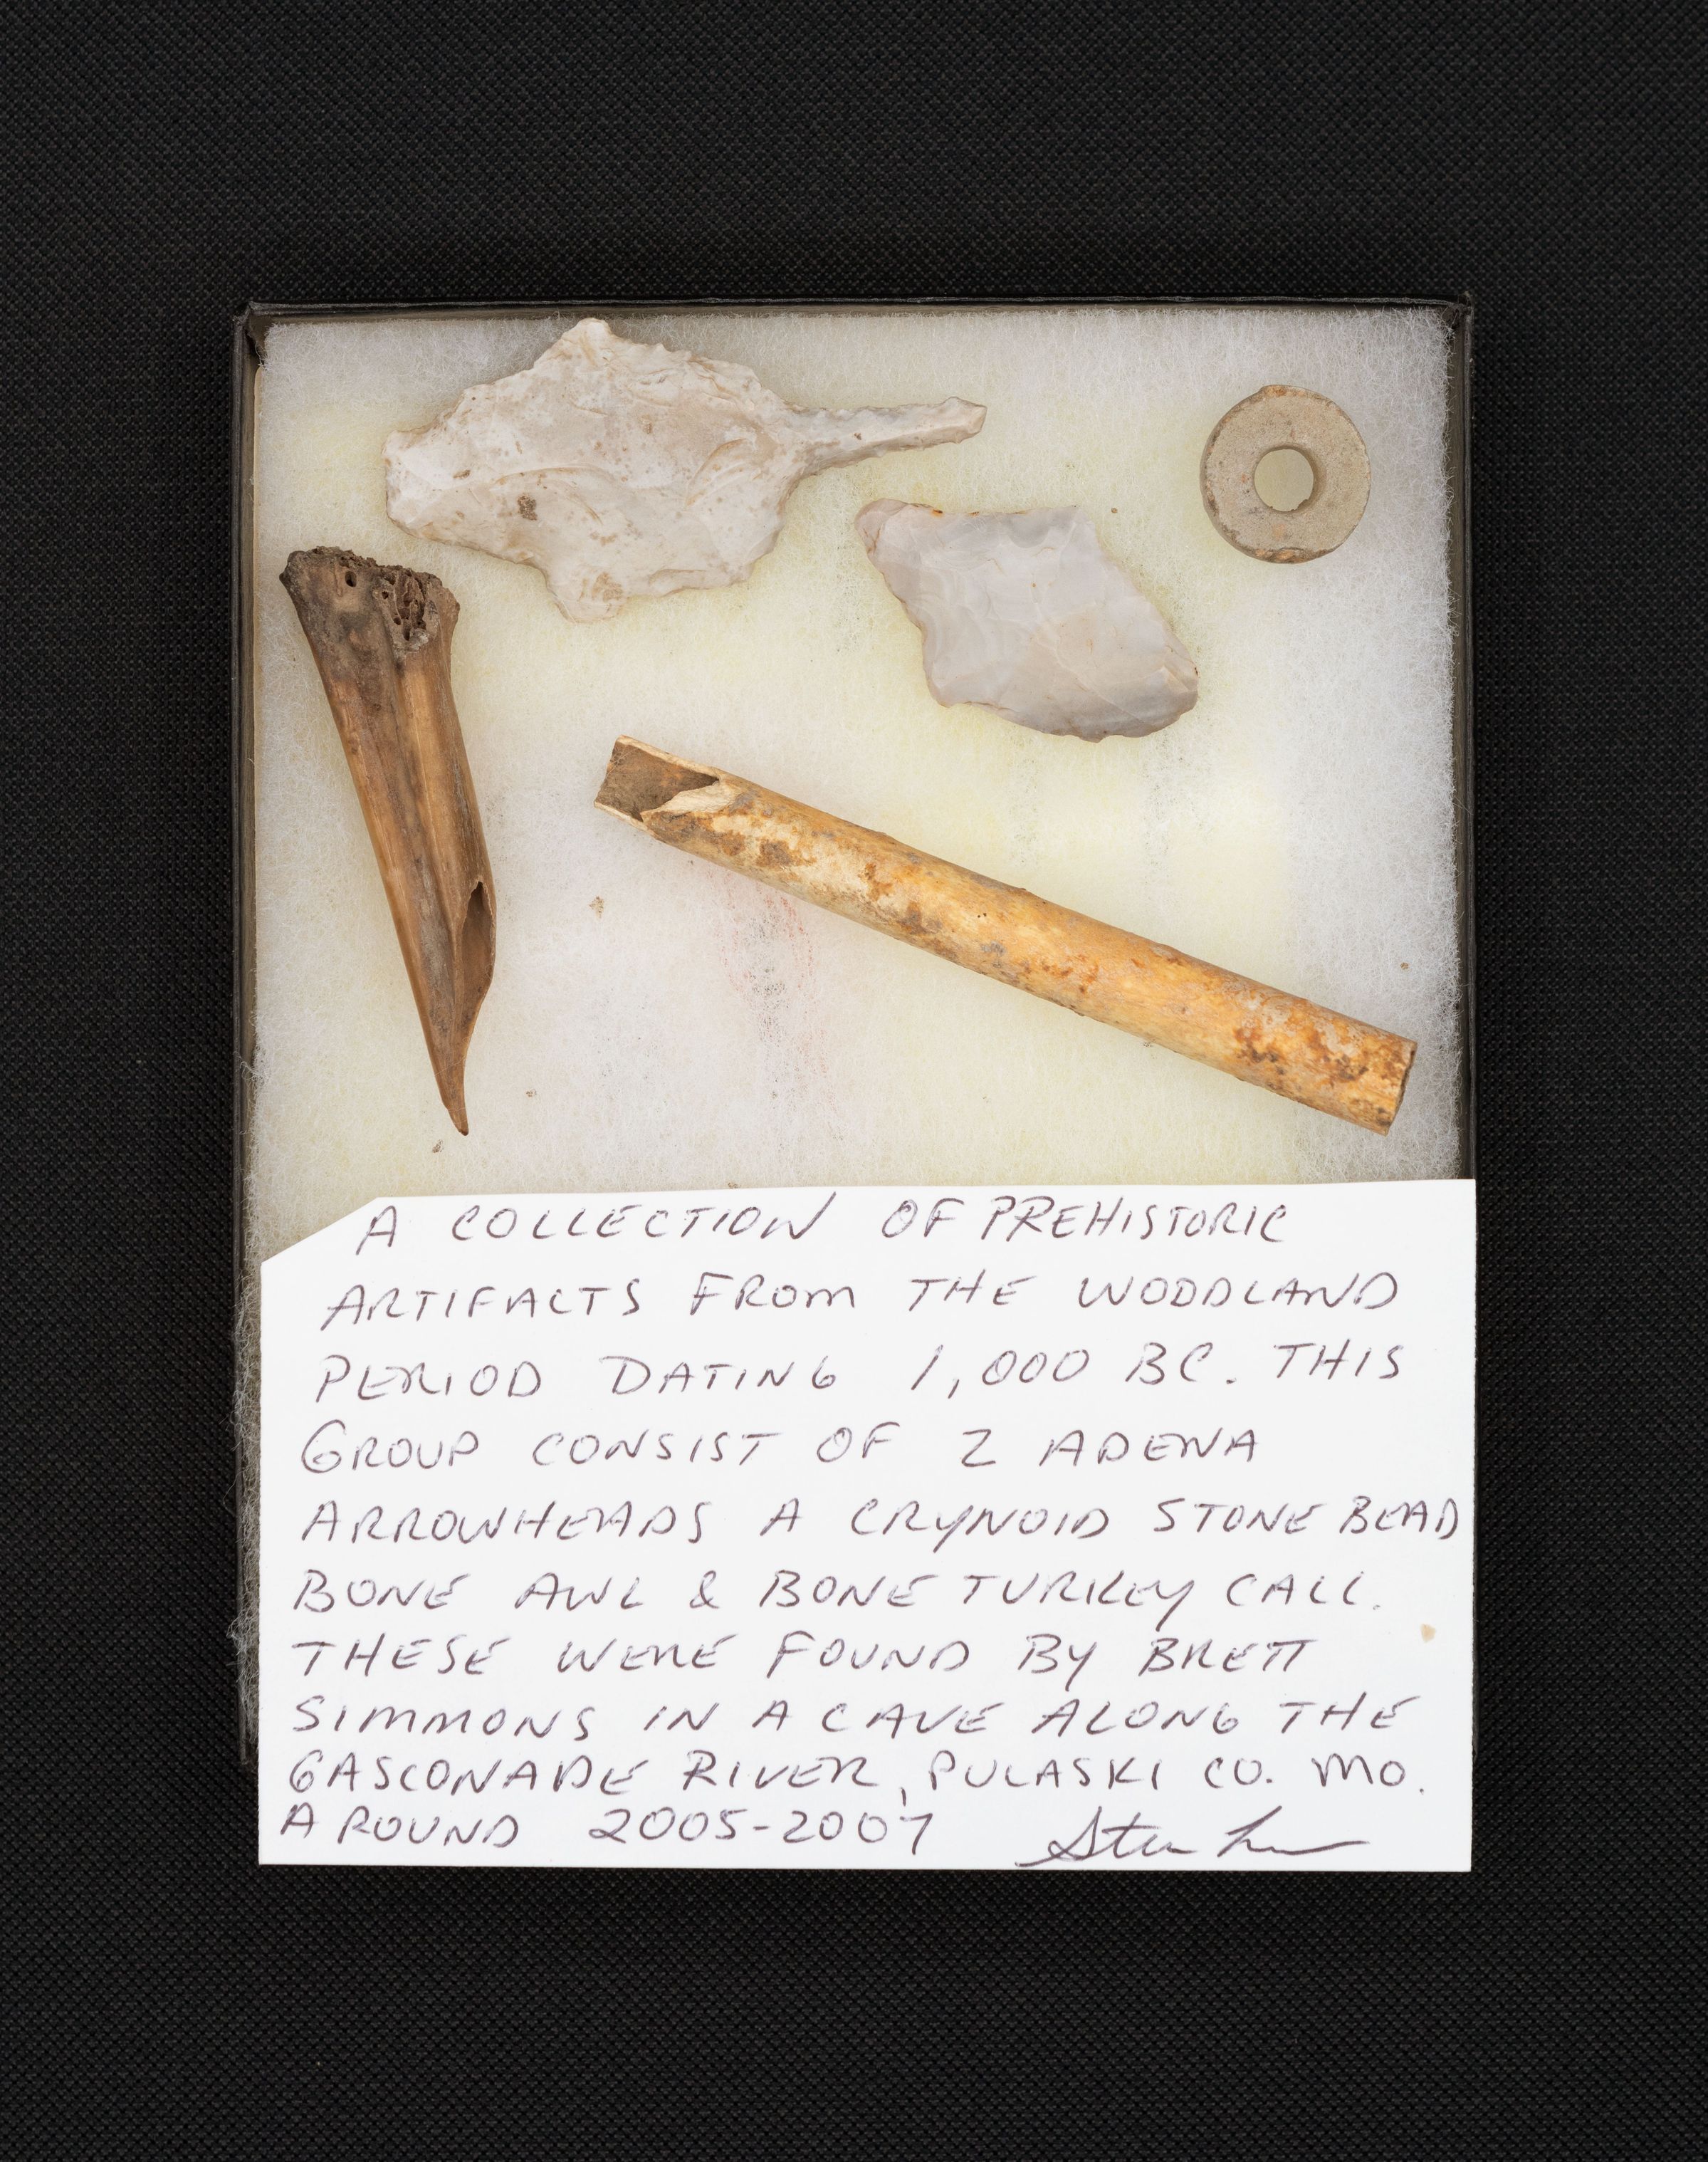 A COLLECTION OF PREHISTORIC
ARTIFACTS FROM THE WOODLAND
PERIOD DATING 1,000 BC. THIS
GROUP CONSIST OF 2 ADENA
ARROWHEADS A CRYNOID STONE BEAD
BONE AWL & BONE TURKEY CALL.
THESE WERE FOUND BY BRETT
SIMMONS IN A CAVE ALONG THE
GASCONADE RIVER, PULASKI CO. MO.
AROUND 2005-2007